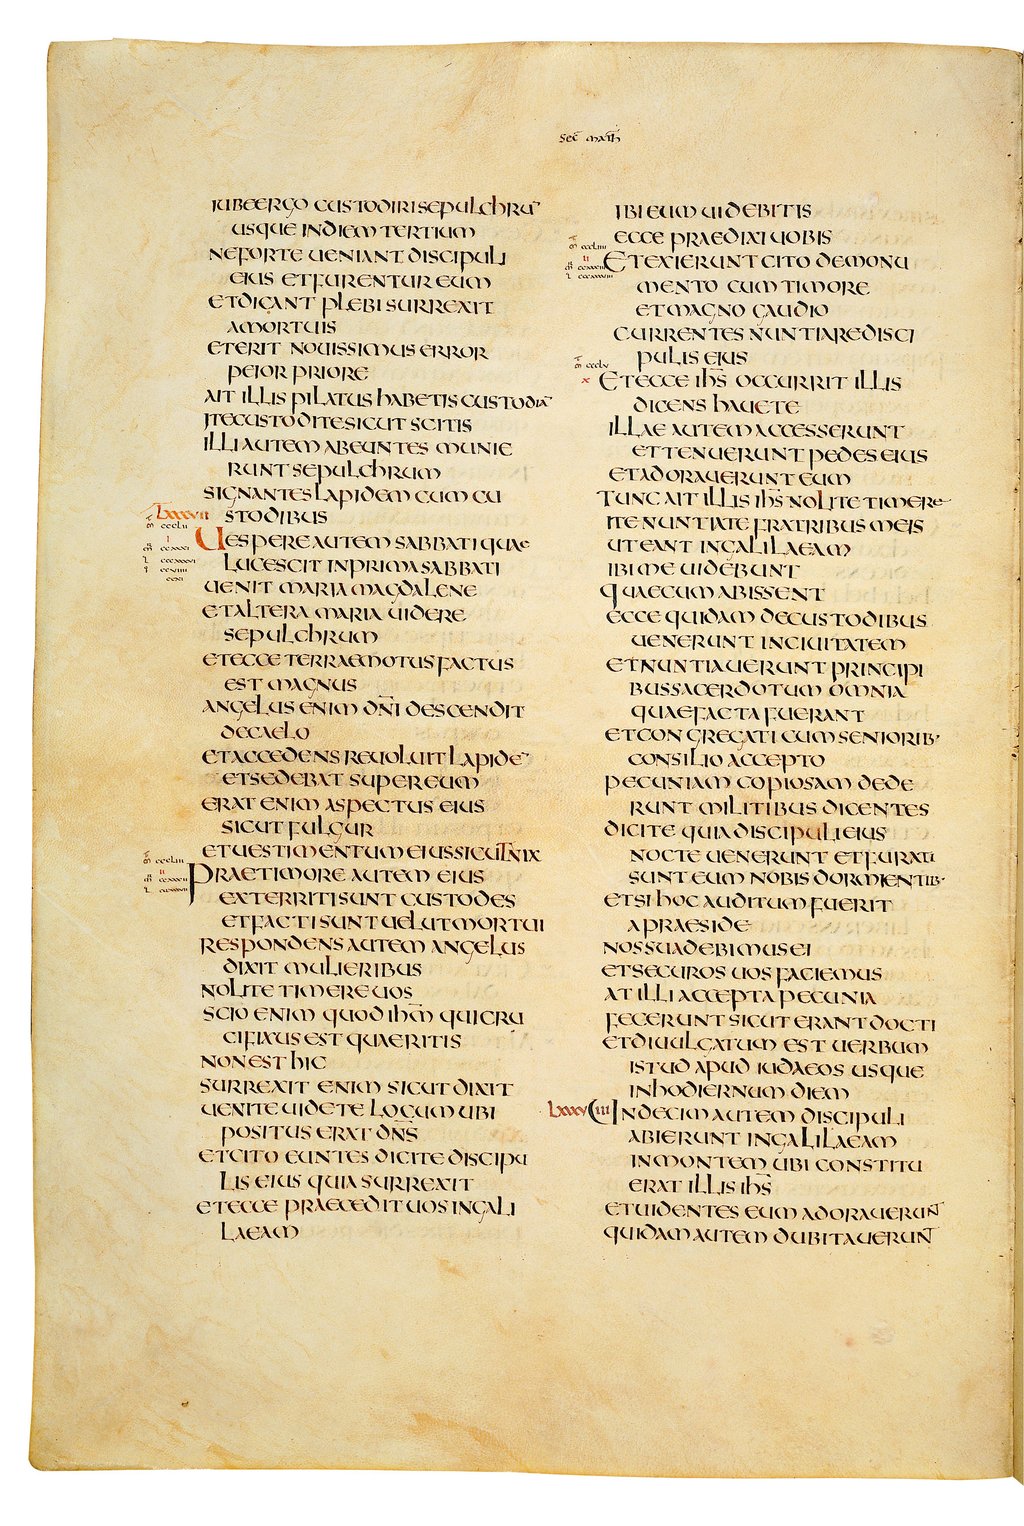 sec̄ math̄
IUBE ERGO CUSTODIRI SEPULCHRU̅
USQUE IN DIEM TERTIUM
NE FORTE UENIANT DISCIPULI
EIUS ET FURENTUR EUM
ET DICANT PLEBI SURREXIT
A MORTUIS
ET ERIT NOUISSIMUS ERROR
PEIOR PRIORE
AIT ILLIS PILATUS HABETIS CUSTODIA̅
ITE CUSTODITE SICUT SCITIS
ILLI AUTEM ABEUNTES MUNIE
RUNT SEPULCHRUM
SIGNANTES LAPIDEM CUM CU
LXXXVII STODIBUS
UESPERE AUTEM SABBATI QUAE
LUCESCIT IN PRIMA SABBATI
UENIT MARIA MAGDALENE
ET ALTERA MARIA UIDERE
SEPULCHRUM
ET ECCE TERRAEMOTUS FACTUS
EST MAGNUS
ANGELUS ENIM DN̅I DESCENDIT
DE CAELO
ET ACCEDENS REUOLUIT LAPIDE̅
ET SEDEBAT SUPER EUM
ERAT ENIM ASPECTUS EIUS
SICUT FULGUR
ET UESTIMENTUM EIUS SICUT NIX
PRAE TIMORE AUTEM EIUS
EXTERRITI SUNT CUSTODES
ET FACTI SUNT UELUT MORTUI
RESPONDENS AUTEM ANGELUS
DIXIT MULIERIBUS
NOLITE TIMERE UOS
SCIO ENIM QUOD IHM̅ QUI CRU
CIFIXUS EST QUAERITIS
NON EST HIC
SURREXIT ENIM SICUT DIXIT
UENITE UIDETE LOCUM UBI
POSITUS ERAT DN̅S
ET CITO EUNTES DICITE DISCIPU
LIS EIUS QUIA SURREXIT
ET ECCE PRAECEDIT UOS IN GALI
LAEAM
IBI EUM UIDEBITIS
ECCE PRAEDIXI UOBIS
ET EXIERUNT CITO DE MONU
MENTO CUM TIMORE
ET MAGNO GAUDIO
CURRENTES NUNTIARE DISCI
PULIS EIUS
ET ECCE IHS̅ OCCURRIT ILLIS
DICENS HAUETE
ILLAE AUTEM ACCESSERUNT
ET TENUERUNT PEDES EIUS
ET ADORAUERUNT EUM
TUNC AIT ILLIS IHS̅ NOLITE TIMERE
ITE NUNTIATE FRATRIBUS MEIS
UT EANT IN GALILAEAM
IBI ME UIDEBUNT
QUAE CUM ABISSENT
ECCE QUIDAM DE CUSTODIBUS
UENERUNT IN CIUITATEM
ET NUNTIAUERUNT PRINCIPI
BUS SACERDOTUM OMNIA
QUAE FACTA FUERANT
ET CONGREGATI CUM SENIORIB·
CONSILIO ACCEPTO
PECUNIAM COPIOSAM DEDE
RUNT MILITIBUS DICENTES
DICITE QUIA DISCIPULI EIUS
NOCTE UENERUNT ET FURATI
SUNT EUM NOBIS DORMIENTIB·
ET SI HOC AUDITUM FUERIT
A PRAESIDE
NOS SUADEBIMUS EI
ET SECUROS UOS FACIEMUS
AT ILLI ACCEPTA PECUNIA
FECERUNT SICUT ERANT DOCTI
ET DIUULGATUM EST UERBUM
ISTUD APUD IUDAEOS USQUE
IN HODIERNUM DIEM
LXXXVIII UNDECIM AUTEM DISCIPULI
ABIERUNT IN GALILAEAM
IN MONTEM UBI CONSTITU
ERAT ILLIS IHS̅
ET UIDENTES EUM ADORAUERUN̅T
QUIDAM AUTEM DUBITAUERUN̅T